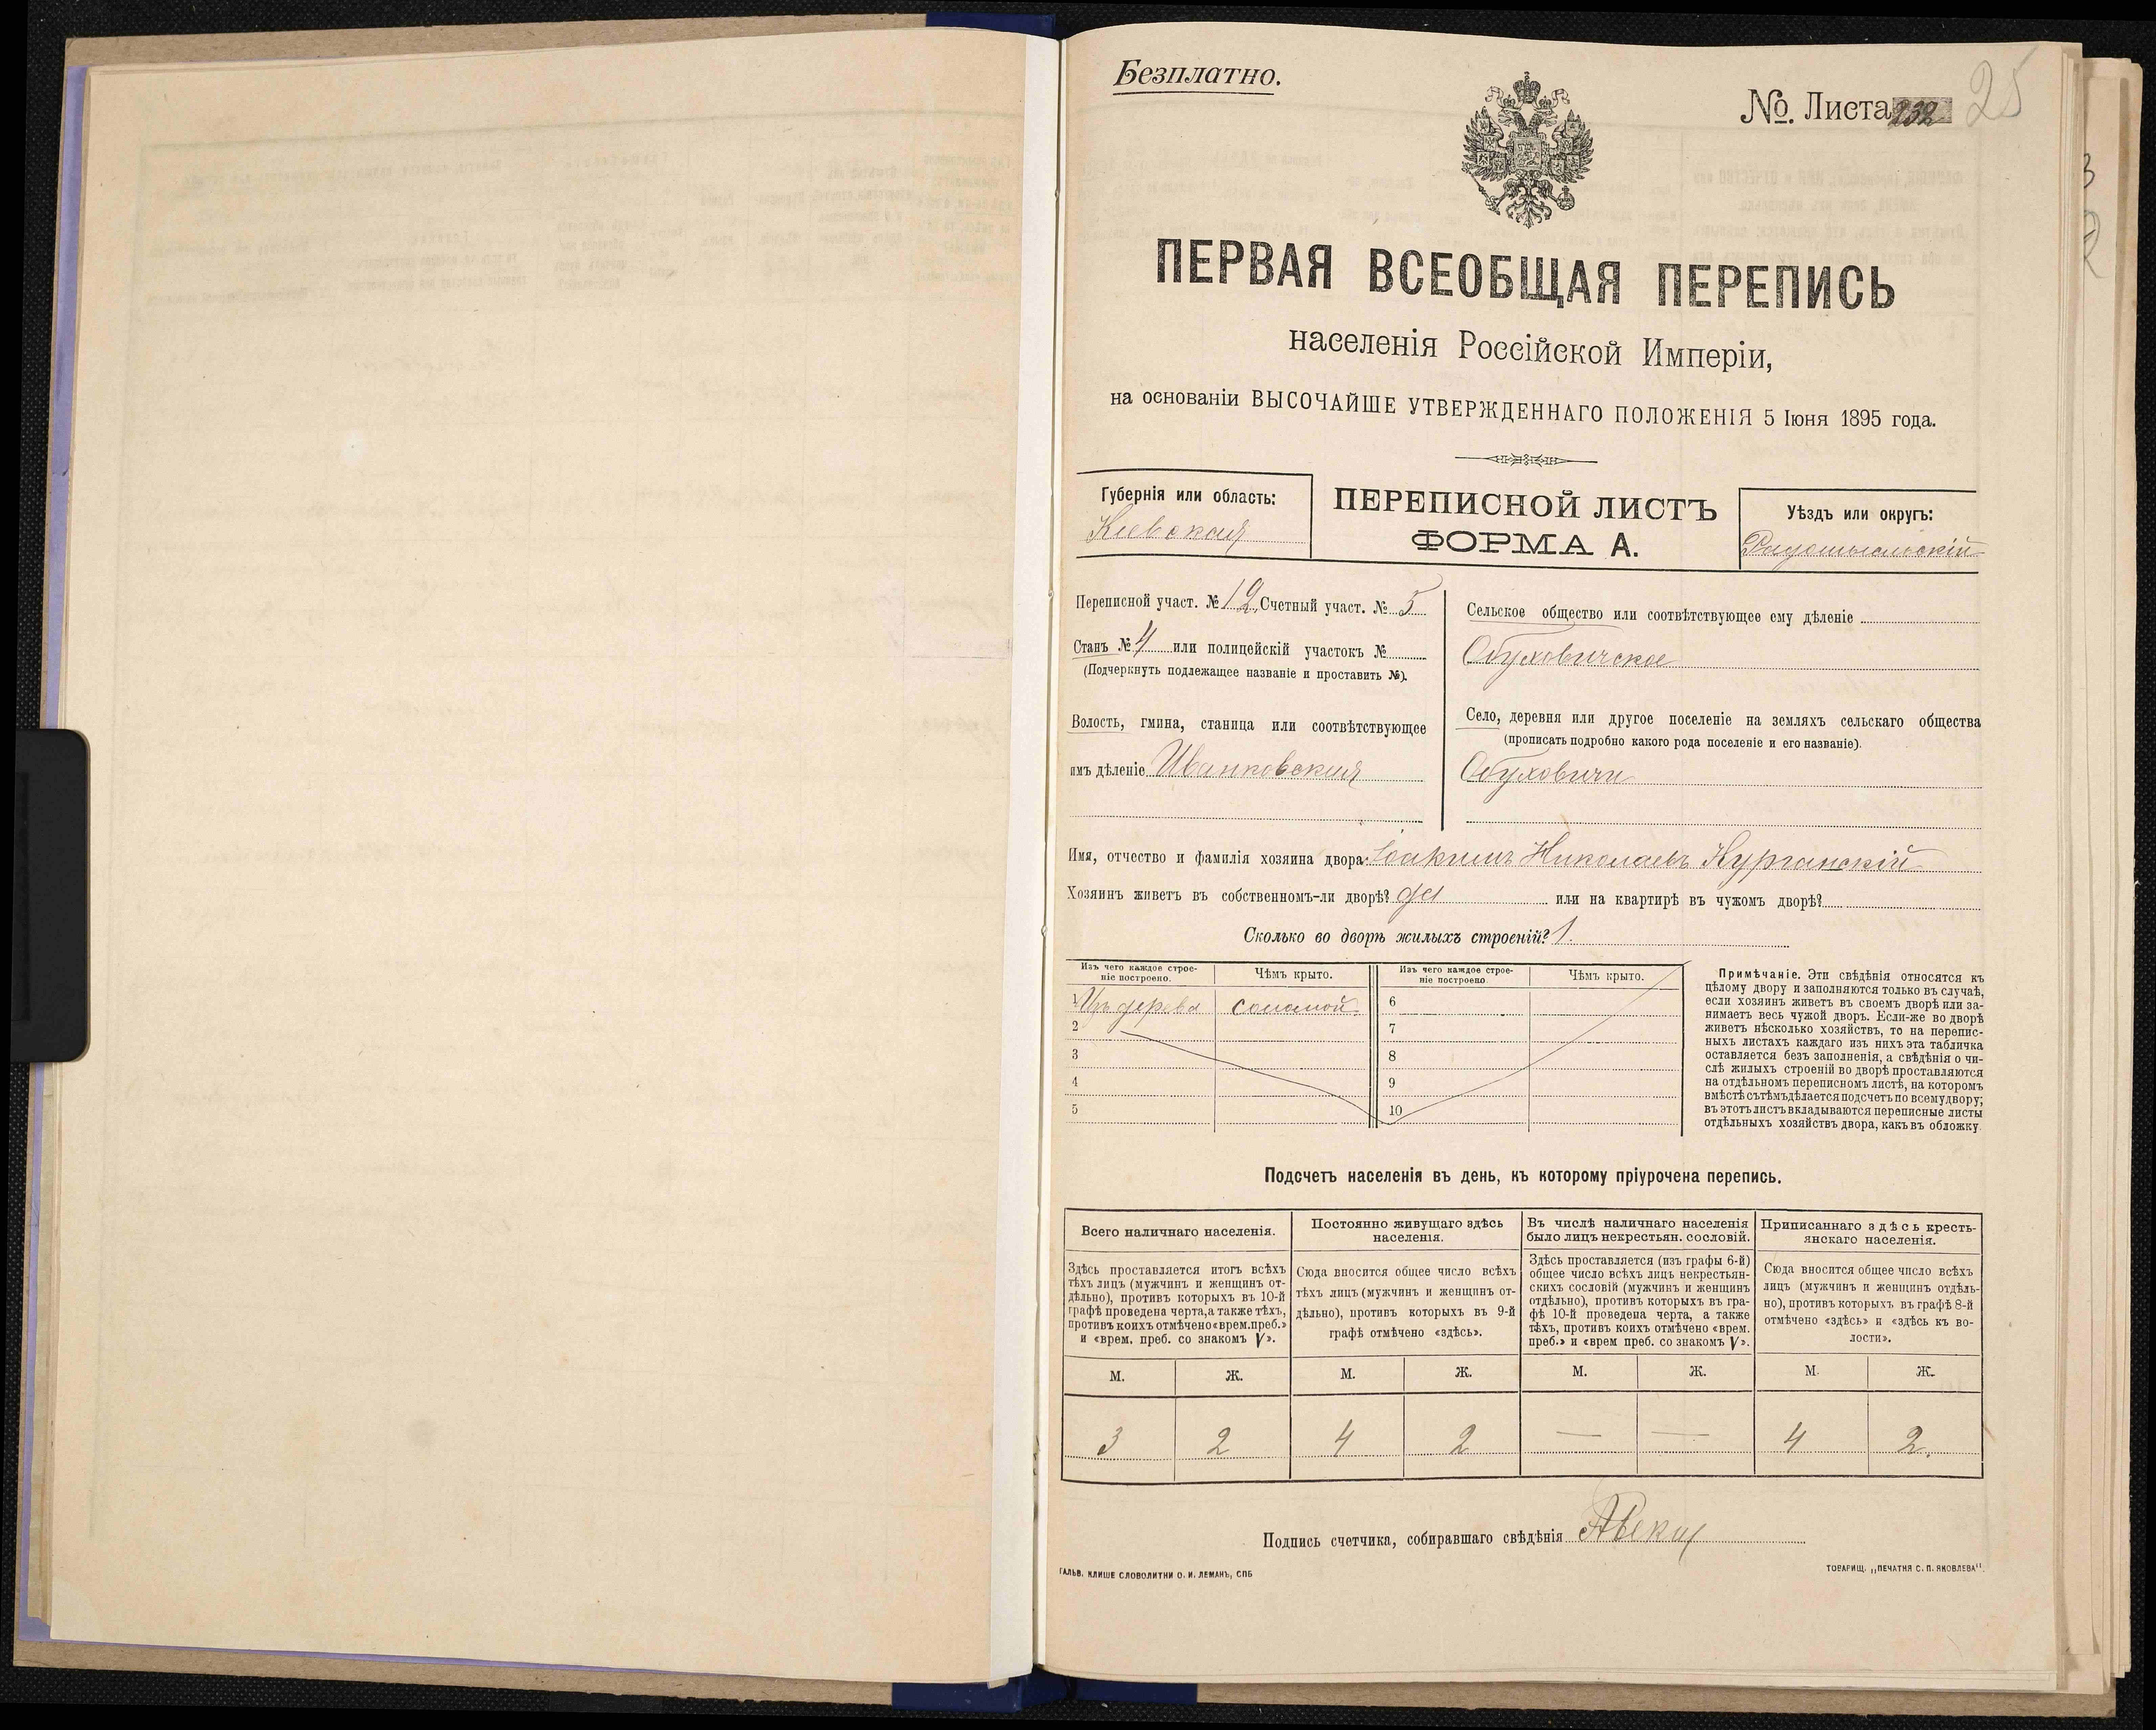 Безплатно.
№. Листа 232 25
ПЕРВАЯ ВСЕОБЩАЯ ПЕРЕПИСЬ
населенія Россійской Имперіи,
на основаніи ВЫСОЧАЙШЕ УТВЕРЖДЕННАГО ПОЛОЖЕНІЯ 5 Іюня 1895 года.
Губернія или область:
Кіевская
ПЕРЕПИСНОЙ ЛИСТЪ
ФОРМА А.
Уѣздъ или округъ:
Радомысльскій
Переписной участ. № 12 Счетный участ. № 5
Станъ № 4 или полицейскій участокъ №
(Подчеркнуть подлежащее названіе и проставить №).
Волость, гмина, станица или соотвѣтствующее
имъ дѣленіе Иванковская
Сельское общество или соотвѣтствующее ему дѣленіе
Обуховичское
Село, деревня или другое поселеніе на земляхъ сельскаго общества
(прописать подробно какого рода поселеніе и его названіе).
Обуховичи
Имя, отчество и фамилія хозяина двора: Іоакимъ Николаевъ Курганскій
Хозяинъ живетъ въ собственномъ-ли дворѣ? да или на квартирѣ въ чужомъ дворѣ?
Сколько во дворѣ жилыхъ строеній? 1.
Изъ чего каждое строе-
ніе построено.
Чѣмъ крыто.
Изъ чего каждое строе-
ніе построено
Чѣмъ крыто.
1 Изъ дерева соломой 6
2 7
3 8
4 9
5 10
Примѣчаніе. Эти свѣдѣнія относятся къ
цѣлому двору и заполняются только въ случаѣ,
если хозяинъ живетъ въ своемъ дворѣ или за-
нимаетъ весь чужой дворъ. Если-же во дворѣ
живетъ нѣсколько хозяйствъ, то на перепис-
ныхъ листахъ каждаго изъ нихъ эта табличка
оставляется безъ заполненія, а свѣдѣнія о чи-
слѣ жилыхъ строеній во дворѣ проставляются
на отдѣльномъ переписномъ листѣ, на которомъ
вмѣстѣ съ тѣмъ дѣлается подсчетъ по всему двору;
въ этотъ листъ вкладываются переписные листы
отдѣльныхъ хозяйствъ двора, какъ въ обложку.
Подсчетъ населенія въ день, къ которому пріурочена перепись.
Всего наличнаго населенія.
Здѣсь проставляется итогъ всѣхъ
тѣхъ лицъ (мужчинъ и женщинъ от-
дѣльно), противъ которыхъ въ 10-й
графѣ проведена черта, а также тѣхъ,
противъ коихъ отмѣчено «врем. преб.»
и «врем. преб. со знакомъ V».
Постоянно живущаго здѣсь
населенія.
Сюда вносится общее число всѣхъ
тѣхъ лицъ (мужчинъ и женщинъ от-
дѣльно), противъ которыхъ въ 9-й
графѣ отмѣчено «здѣсь».
Въ числѣ наличнаго населенія
было лицъ некрестьян. сословій.
Здѣсь проставляется (изъ графы 6-й)
общее число всѣхъ лицъ некрестьян-
скихъ сословій (мужчинъ и женщинъ
отдѣльно), противъ которыхъ въ гра-
фѣ 10-й проведена черта, а также
тѣхъ, противъ коихъ отмѣчено «врем.
преб.» и «врем преб. со знакомъ V».
Приписаннаго здѣсь кресть-
янскаго населенія.
Сюда вносится общее число всѣхъ
лицъ (мужчинъ и женщинъ отдѣль-
но), противъ которыхъ въ графѣ 8-й
отмѣчено «здѣсь» и «здѣсь къ во-
лости».
М. Ж. М. Ж. М. Ж. М. Ж.
3 2 4 2 — — 4 2.
Подпись счетчика, собиравшаго свѣдѣнія
ГАЛЬВ. КЛИШЕ СЛОВОЛИТНИ О. И. ЛЕМАНЪ, СПБ
ТОВАРИЩ. „ПЕЧАТНЯ С. П. ЯКОВЛЕВА".